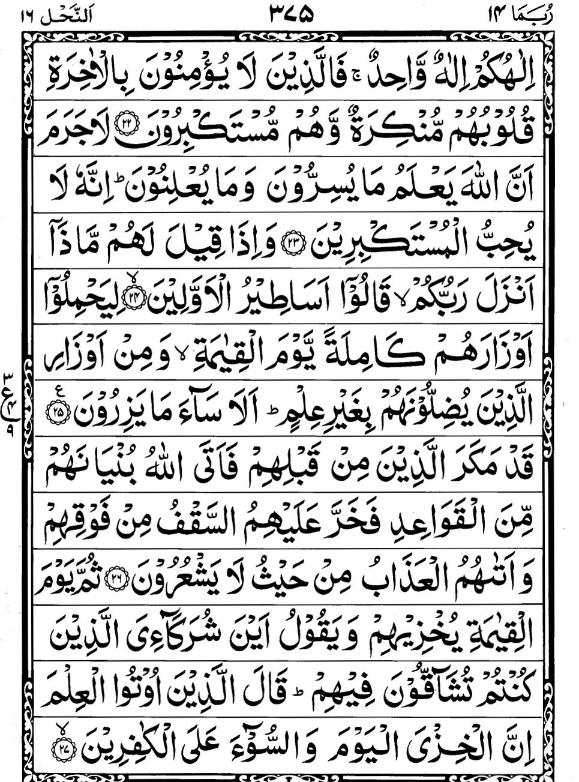 رُبَمَا ۱۴ ۳۷۵ اَلنَّحْل ۱۶
اِلٰهُكُمْ اِلٰهٌ وَّاحِدٌ ۚ فَالَّذِيْنَ لَا يُؤْمِنُوْنَ بِالْاٰخِرَةِ
قُلُوْبُهُمْ مُّنْكِرَةٌ وَّهُمْ مُّسْتَكْبِرُوْنَ ۲۲ لَاجَرَمَ
اَنَّ اللّٰهَ يَعْلَمُ مَا يُسِرُّوْنَ وَمَا يُعْلِنُوْنَ ؕ اِنَّهٗ لَا
يُحِبُّ الْمُسْتَكْبِرِيْنَ ۲۳ وَاِذَا قِيْلَ لَهُمْ مَّاذَاۤ
اَنْزَلَ رَبُّكُمْ ۙ قَالُوْۤا اَسَاطِيْرُ الْاَوَّلِيْنَ ۙ ۲۴ لِيَحْمِلُوْۤا
اَوْزَارَهُمْ كَامِلَةً يَّوْمَ الْقِيٰمَةِ ۙ وَمِنْ اَوْزَارِ
الَّذِيْنَ يُضِلُّوْنَهُمْ بِغَيْرِ عِلْمٍ ؕ اَلَا سَآءَ مَا يَزِرُوْنَ ۲۵ ع
۳ ع ۴ ۹
قَدْ مَكَرَ الَّذِيْنَ مِنْ قَبْلِهِمْ فَاَتَى اللّٰهُ بُنْيَانَهُمْ
مِّنَ الْقَوَاعِدِ فَخَرَّ عَلَيْهِمُ السَّقْفُ مِنْ فَوْقِهِمْ
وَاَتٰىهُمُ الْعَذَابُ مِنْ حَيْثُ لَا يَشْعُرُوْنَ ۲۶ ثُمَّ يَوْمَ
الْقِيٰمَةِ يُخْزِيْهِمْ وَيَقُوْلُ اَيْنَ شُرَكَآءِىَ الَّذِيْنَ
كُنْتُمْ تُشَآقُّوْنَ فِيْهِمْ ؕ قَالَ الَّذِيْنَ اُوْتُوا الْعِلْمَ
اِنَّ الْخِزْىَ الْيَوْمَ وَالسُّوْٓءَ عَلَى الْكٰفِرِيْنَ ۙ ۲۷